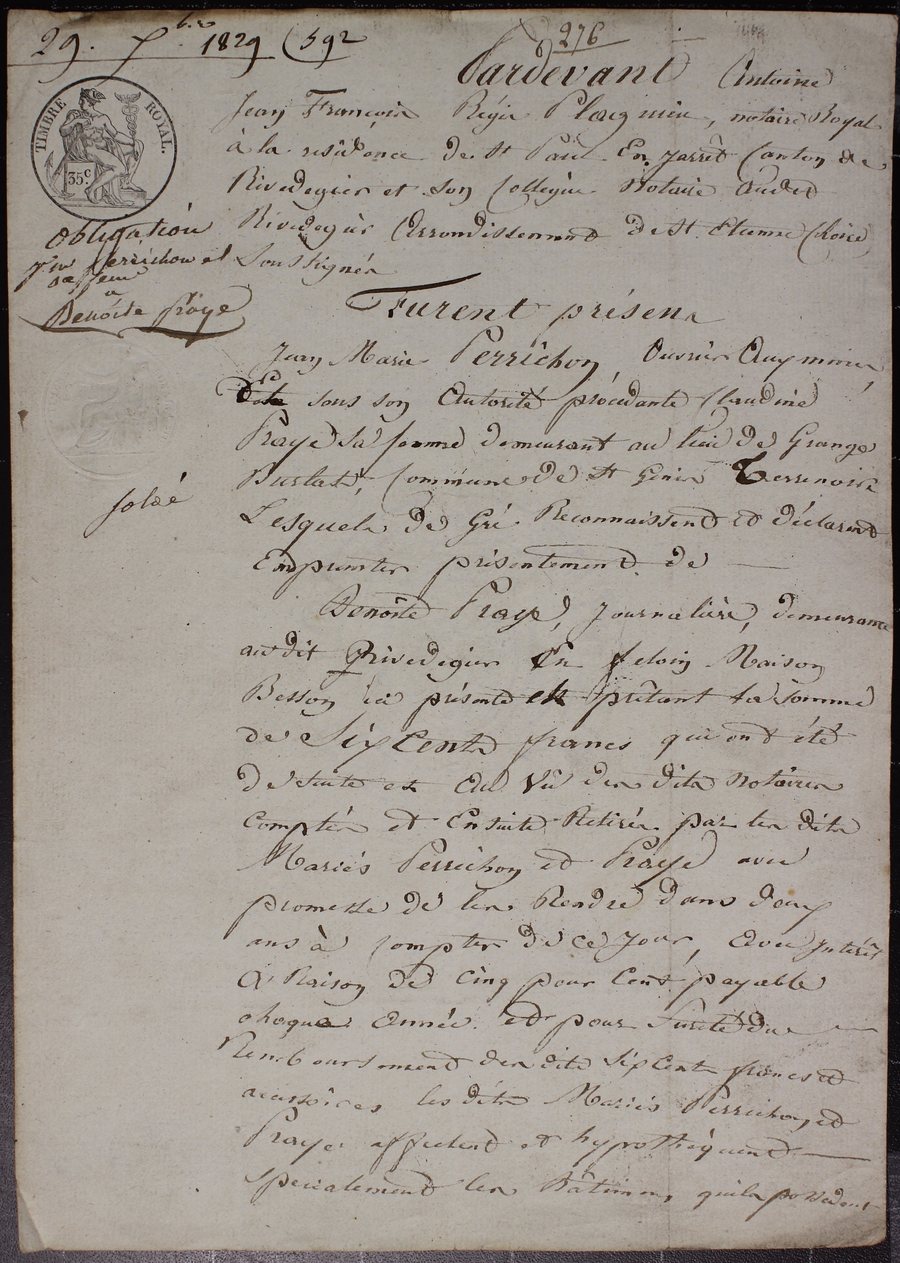 29. Xbre 1829 (592
276
TIMBRE ROYAL.
35c
Obligation
Perrichon et
sa femme
a
Benoîte Fraye
soldé
Pardevant Antoine
Jean François Régis Plagnieu, notaire Royal
à la résidence de St Paul En Jarrêt Canton de
Rivedegier et son Collègue Notaire Audit
Rivedegier Arrondissement de St. Etienne (Loire)
Soussignés
Furent présens
Jean Marie Perrichon, Ouvrier Aux mines,
et sous son Autorité procédante Claudine
Fraye sa femme demeurant au lieu de Grange
Burlat, Commune de St Genis Terrenoire
Lesquels de Gré Reconnaissent et déclarent
Emprunter présentement de
Benoîte Fraye, Journalière, demeurante
audit Rivedegier En feloin Maison
Besson ici présente et prêtant la somme
de Six Cents francs qui ont été
de suite et Au Vû des dits Notaires
Comptés et Ensuite Retirés par les dits
Mariés Perrichon et Fraye avec
promesse de les Rendre dans deux
ans à compter de ce jour, avec Intérêt
A Raison de Cinq pour Cent payable
chaque Année. et pour Sureté du
Remboursement des dits Six Cent francs et
accessoires les dits Mariés Perrichon et
Fraye affectent et hypothèquent
specialement les Bâtimens qu'ils possedent